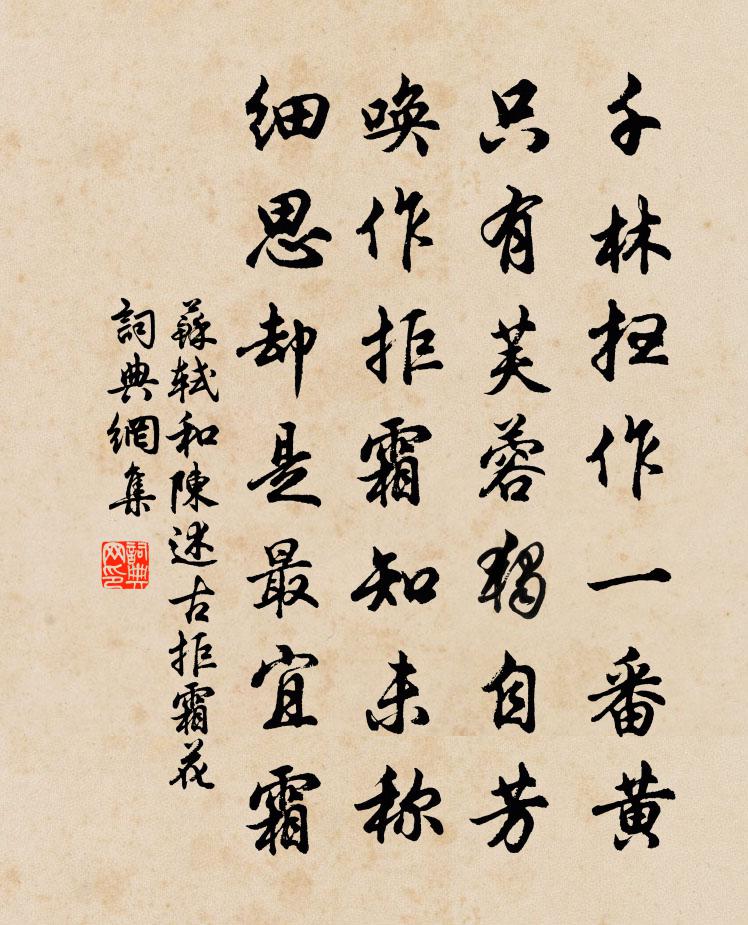 千林扫作一番黄
只有芙蓉獨自芳
唤作拒霜知未称
细思却是最宜霜
蘇軾和陳述古拒霜花
詞典網集
詞典网印